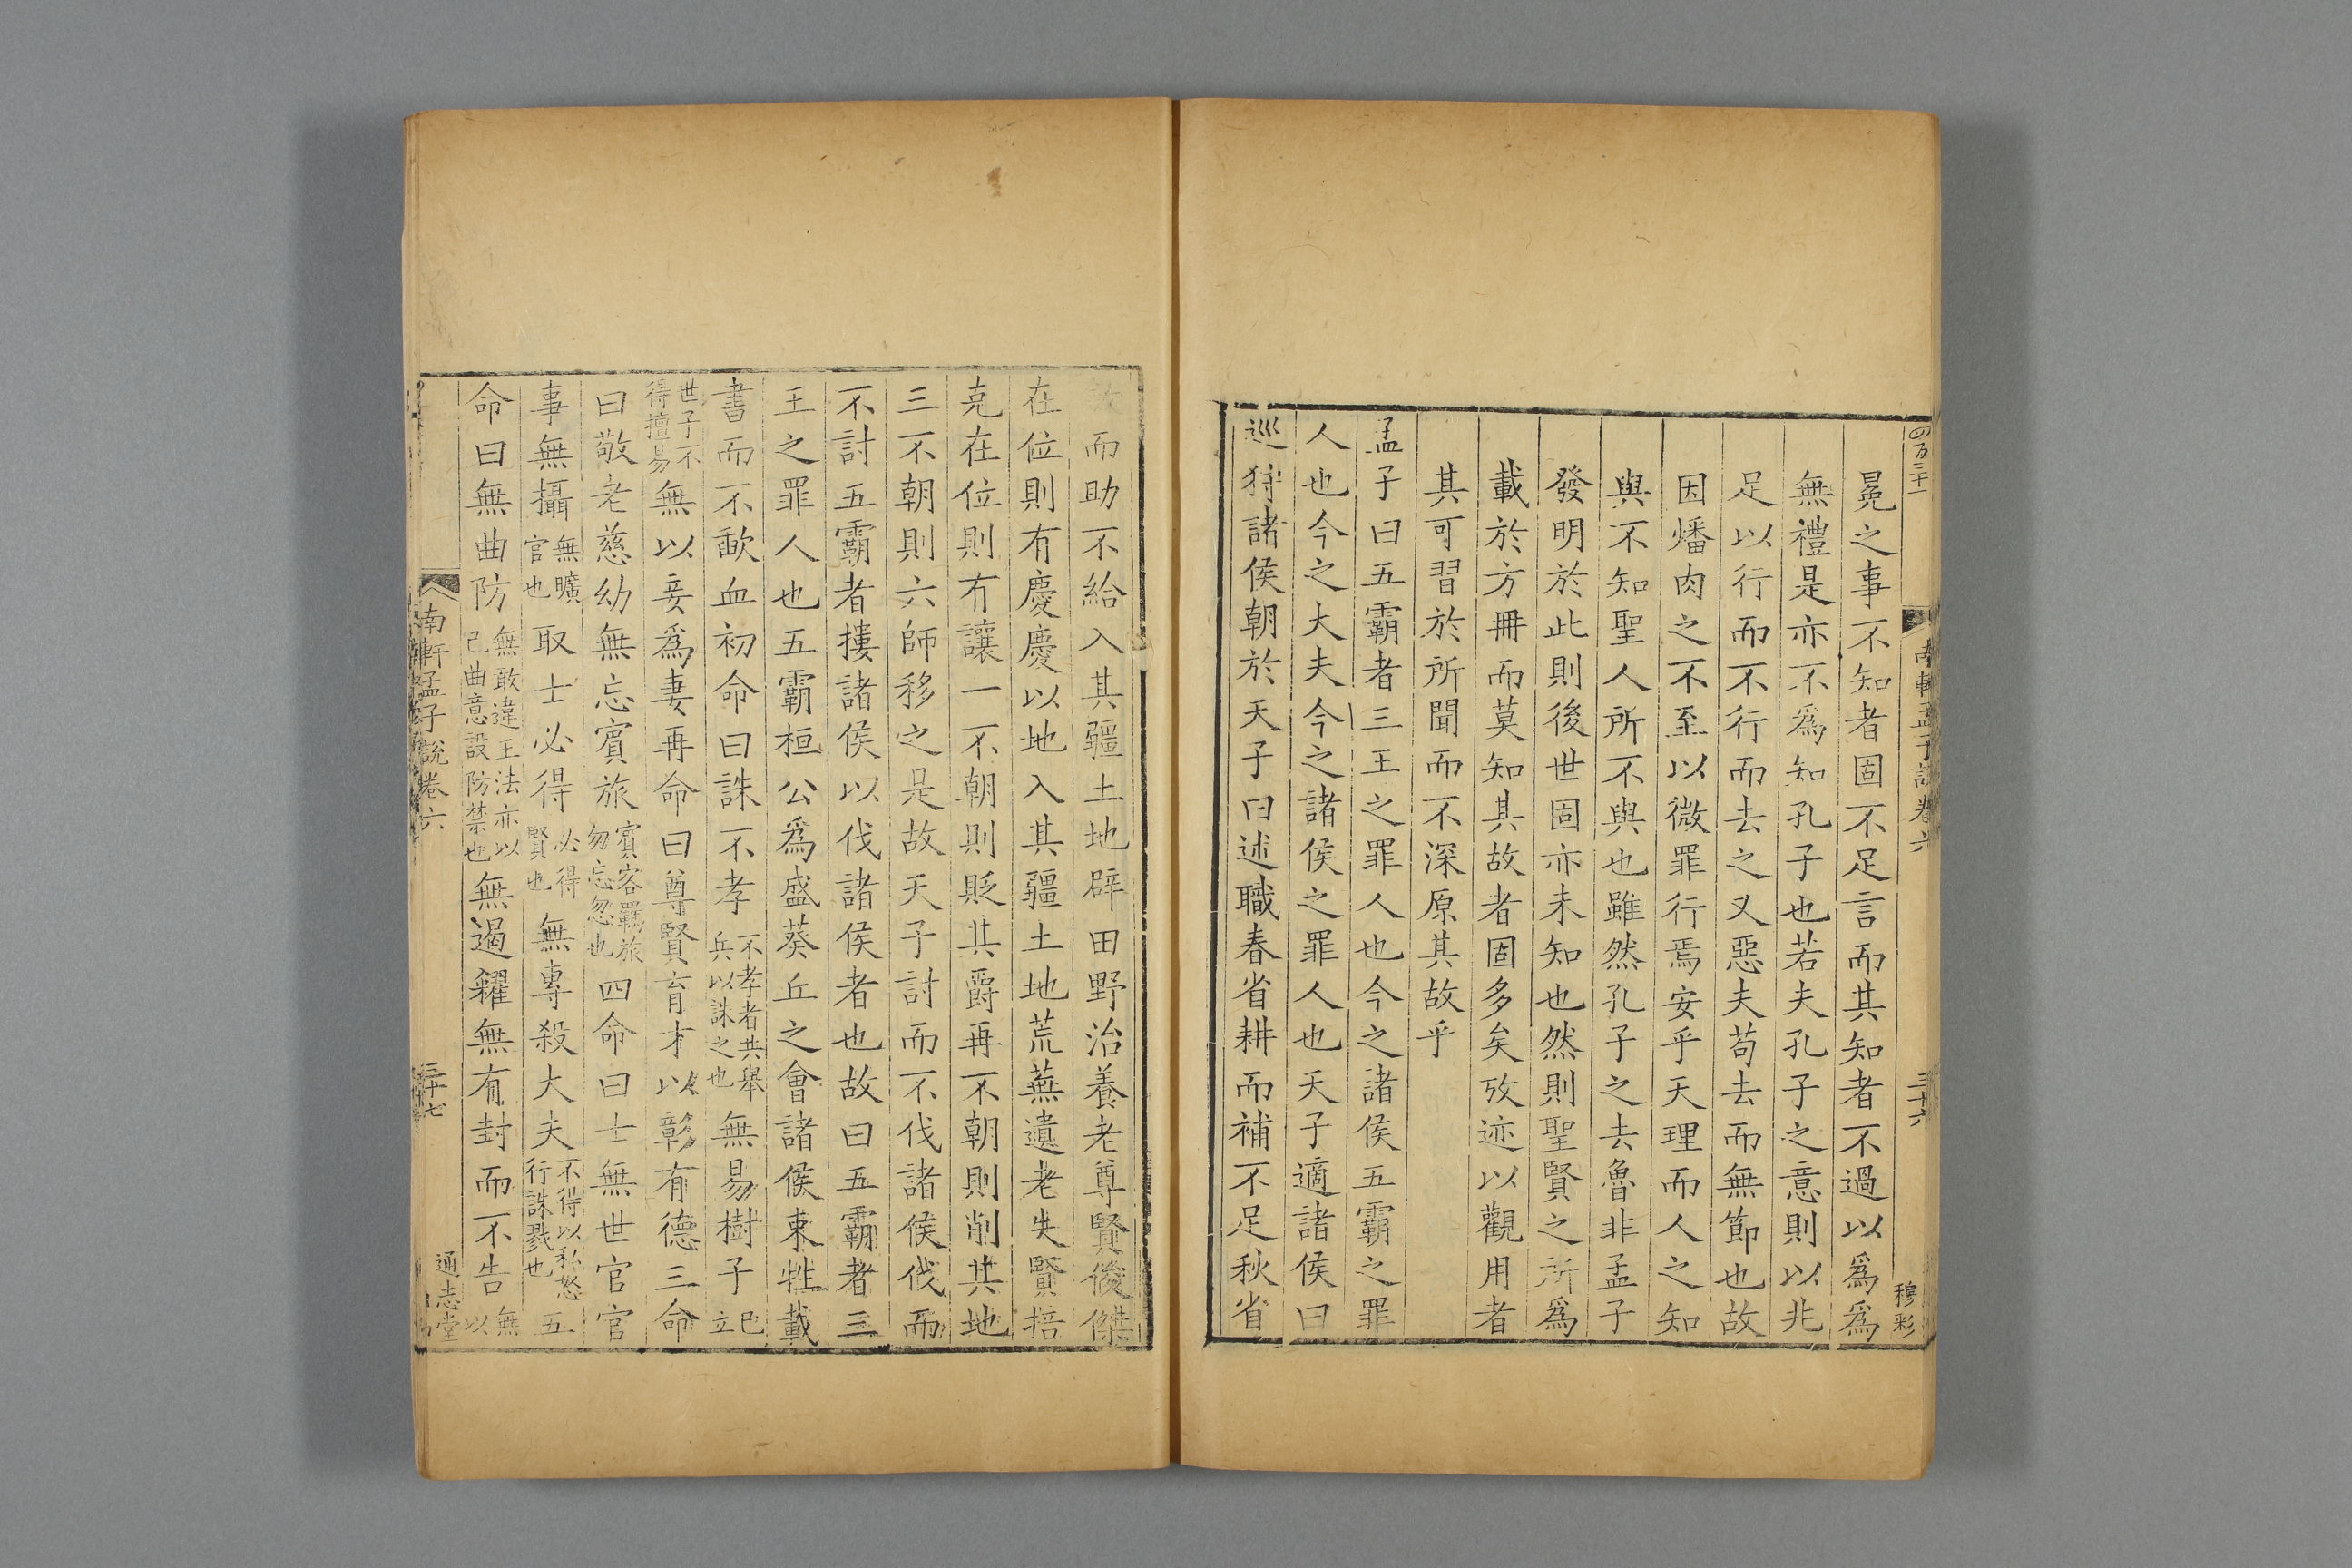 四百三十一
南軒孟子說卷六
三十六
穆彩
冕之事不知者固不足言而其知者不過以爲爲
無禮是亦不爲知孔子也若夫孔子之意則以非
足以行而不行而去之又惡夫苟去而無節也故
因燔肉之不至以微罪行焉安乎天理而人之知
與不知聖人所不與也雖然孔子之去魯非孟子
發明於此則後世固亦未知也然則聖賢之所爲
載於方冊而莫知其故者固多矣攷迹以觀用者
其可習於所聞而不深原其故乎
孟子曰五霸者三王之罪人也今之諸侯五霸之罪
人也今之大夫今之諸侯之罪人也天子適諸侯曰
巡狩諸侯朝於天子曰述職春省耕而補不足秋省
而助不給入其疆土地辟田野治養老尊賢俊傑
在位則有慶慶以地入其疆土地荒蕪遺老失賢掊
克在位則有讓一不朝則貶其爵再不朝則削其地
三不朝則六師移之是故天子討而不伐諸侯伐而
不討五霸者摟諸侯以伐諸侯者也故曰五霸者三
王之罪人也五霸桓公爲盛葵丘之會諸侯束牲載
書而不歃血初命曰誅不孝不孝者共舉兵以誅之也無易樹子已立
世子不得擅易無以妾爲妻再命曰尊賢育才以彰有德三命
曰敬老慈幼無忘賓旅賓客羈旅勿忘忽也四命曰士無世官官
事無攝無曠官也取士必得必得賢也無專殺大夫不得以私怒行誅戮也五
命曰無曲防無敢違王法亦以己曲意設防禁也無遏糴無有封而不告無以
南軒孟子說卷六
三十七
通志堂